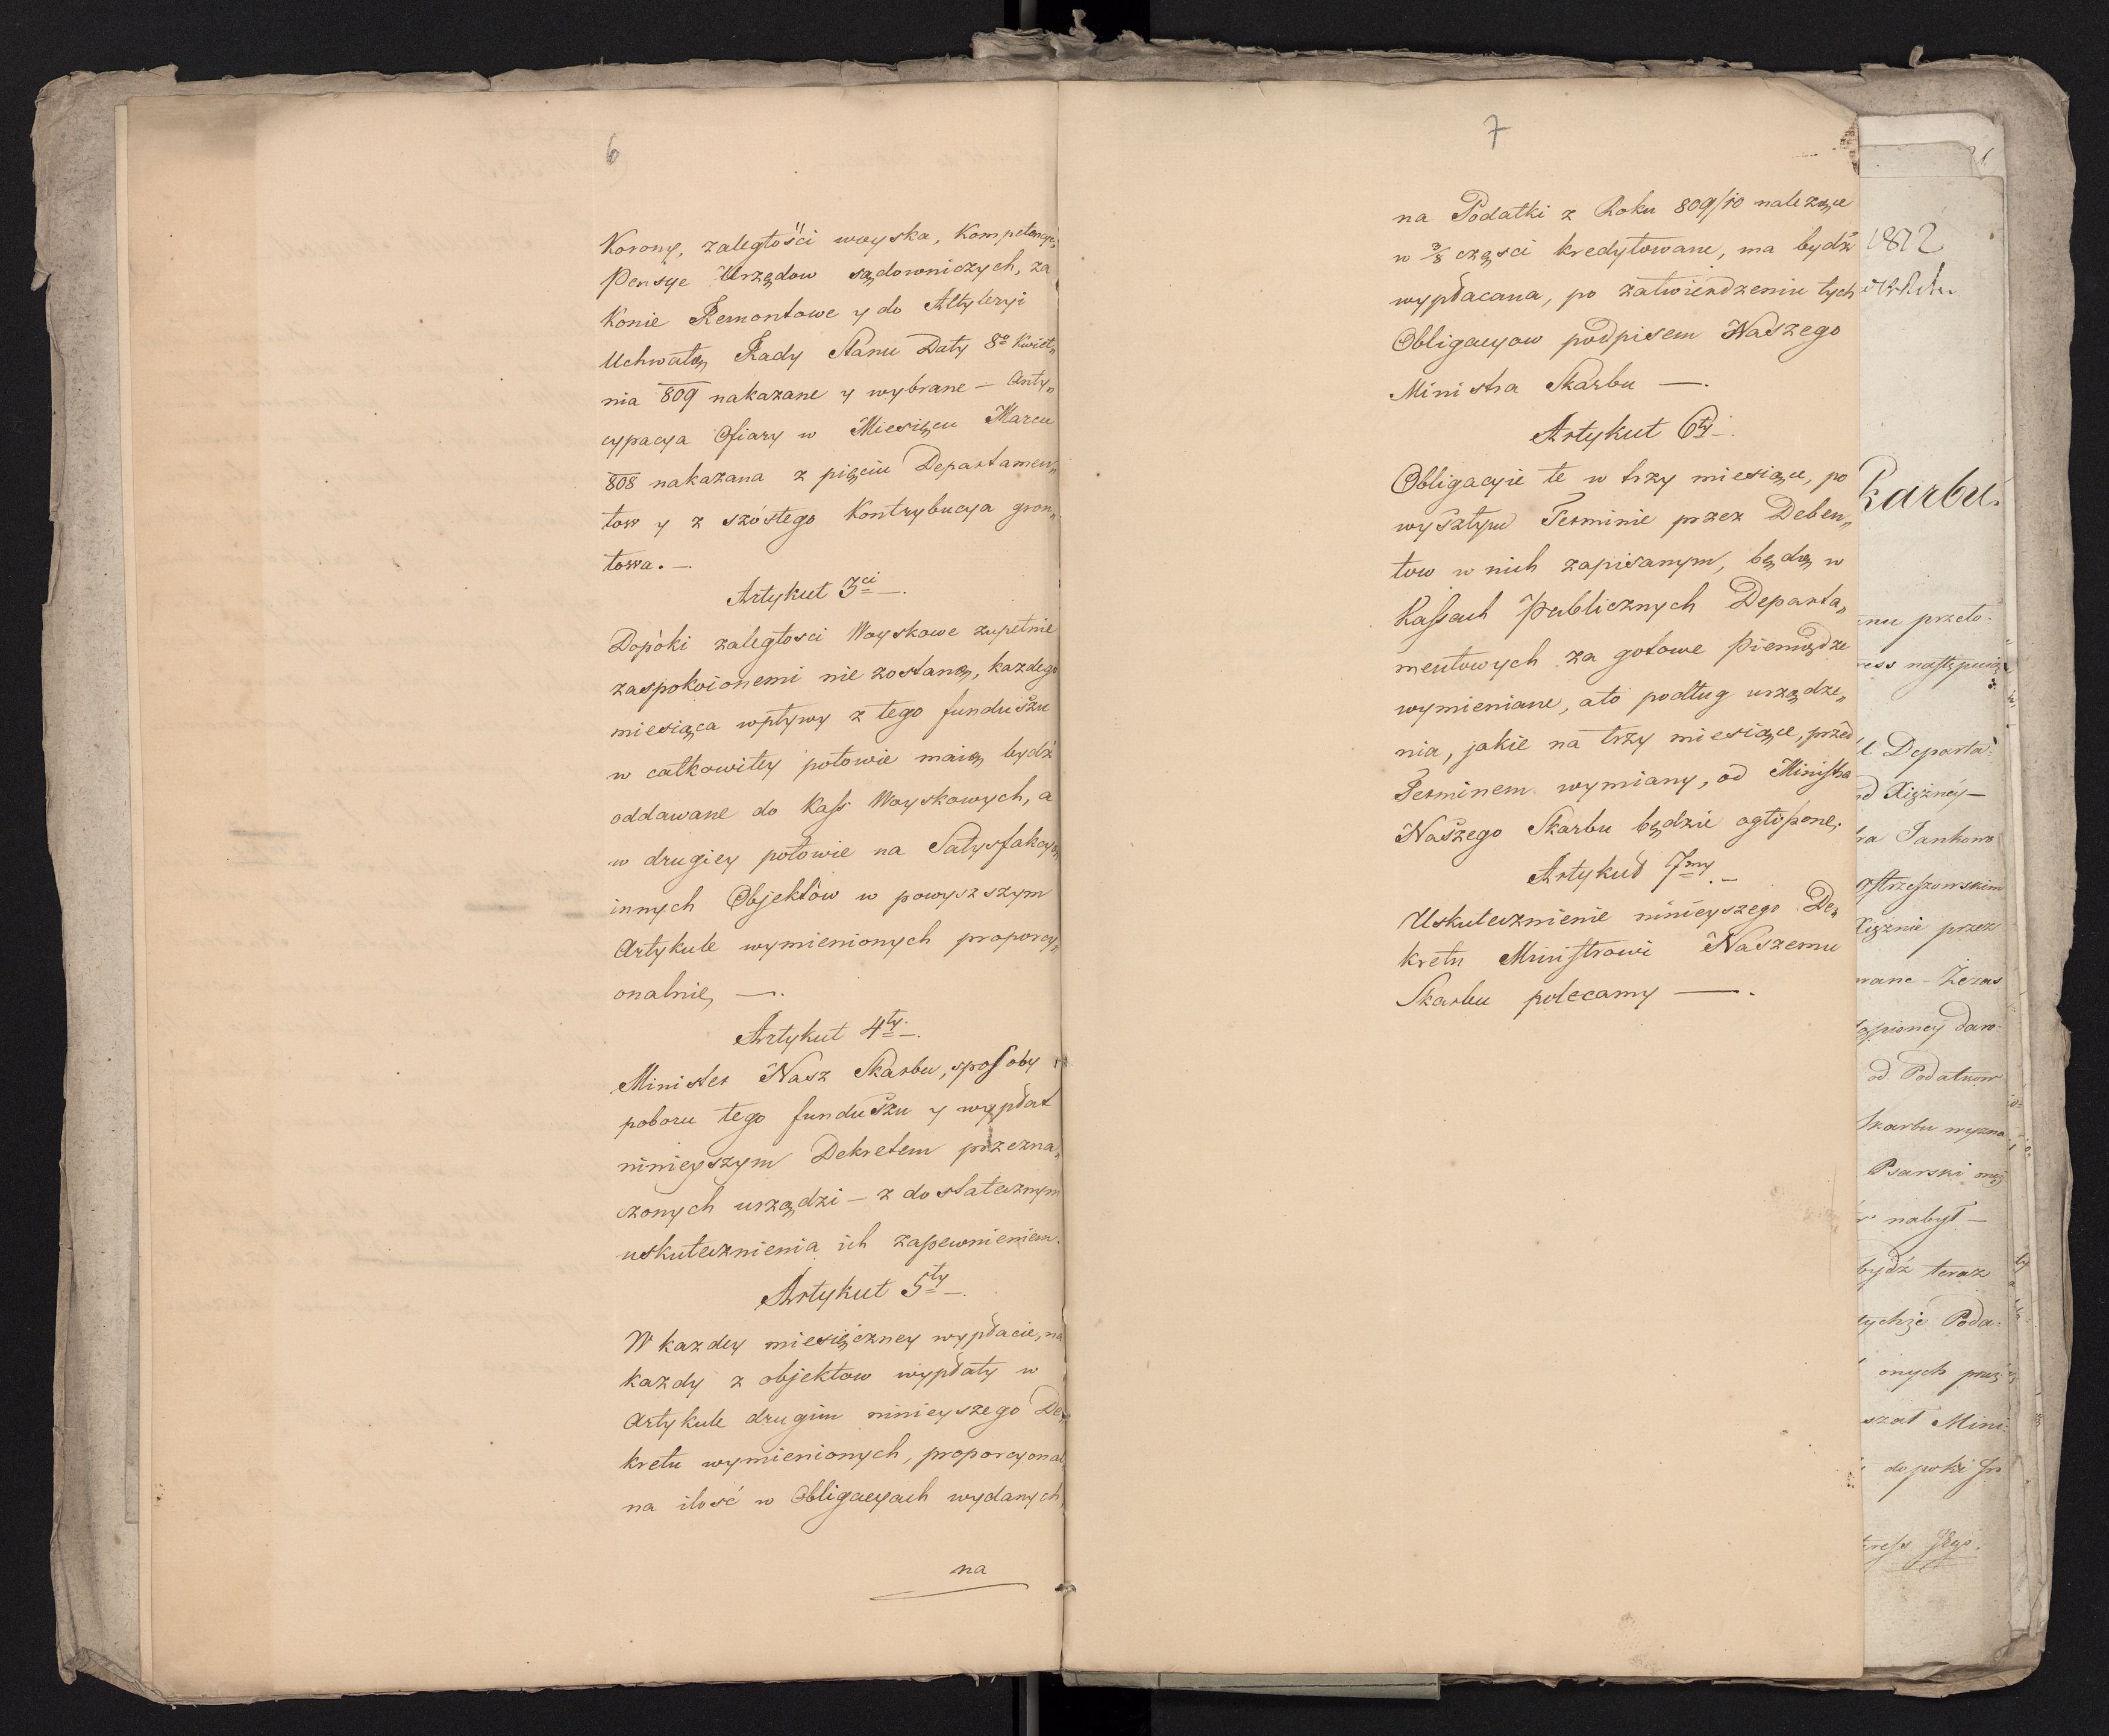 6
Korony, zaległości woyska, Kompetencye,
Pensye Urzędow sądowniczych, za
Konie Remontowe y do Altyleryi
Uchwałą Rady Stanu Daty 8º Kwiet„
nia 809 nakazane y wybrane — Anty„
cypacya Ofiary w Miesiącu Marcu
808 nakazana z pięciu Departamen„
tow y z szóstego Kontrybucya gron„
towa. —
Artykuł 3ci —.
Dopóki zaległosci Woyskowe zupełnie
zaspokoionemi nie zostaną, kazdego
miesiąca wpływy z tego funduszu
w całkowitey połowie maią bydź
oddawane do Kass Woyskowych, a
w drugiey połowie na Satysfakcyą
innych Objektów w powyższym
Artykule wymienionych proporcy„
onalnie, —.
Artykuł 4ty —.
Minister Nasz Skarbu, sposoby
poboru tego funduszu y wypłat
ninieyszym Dekretem przezna„
czonych urządzi — z dostatecznym
uskutecznienia ich zapewnieniem.
Artykuł 5ty —.
W kazdey miesięczney wypłacie, na
kazdy z objektow wypłaty w
Artykule drugim ninieyszego De„
kretu wymienionych, proporcyonal„
na ilość w Obligacyach wydanych,
na
7
na Podatki z Roku 809/10 nalezące
w 3/8 częsci kredytowane, ma bydź
wypłacana, po zatwierdzeniu tych
Obligacyow podpisem Naszego
Ministra Skarbu —.
Artykuł 6ty —.
Obligacyie te w trzy miesiące, po
wyszłym Terminie przez Deben„
tow w nich zapisanym, będą w
Kassach Publicznych Departa„
mentowych za gotowe Pieniądze
wymieniane, ato podług urządze„
nia, jakie na trzy miesiące, przed
Terminem wymiany, od Ministra
Naszego Skarbu będzie ogłoszone.
Artykuł 7my. —
Uskutecznienie ninieyszego De„
kretu Ministrowi Naszemu
Skarbu polecamy —.
1812
karbu.
przeto
Departa
Xiężney —
Jankow
Ostrzeszowskim
Xiężnie przez
wane — Żezas
od Podatkow
Skarbu wyzna
Psarski
nabył —
bydź teraz
tychże Poda
onych
szał Mini
Jego.